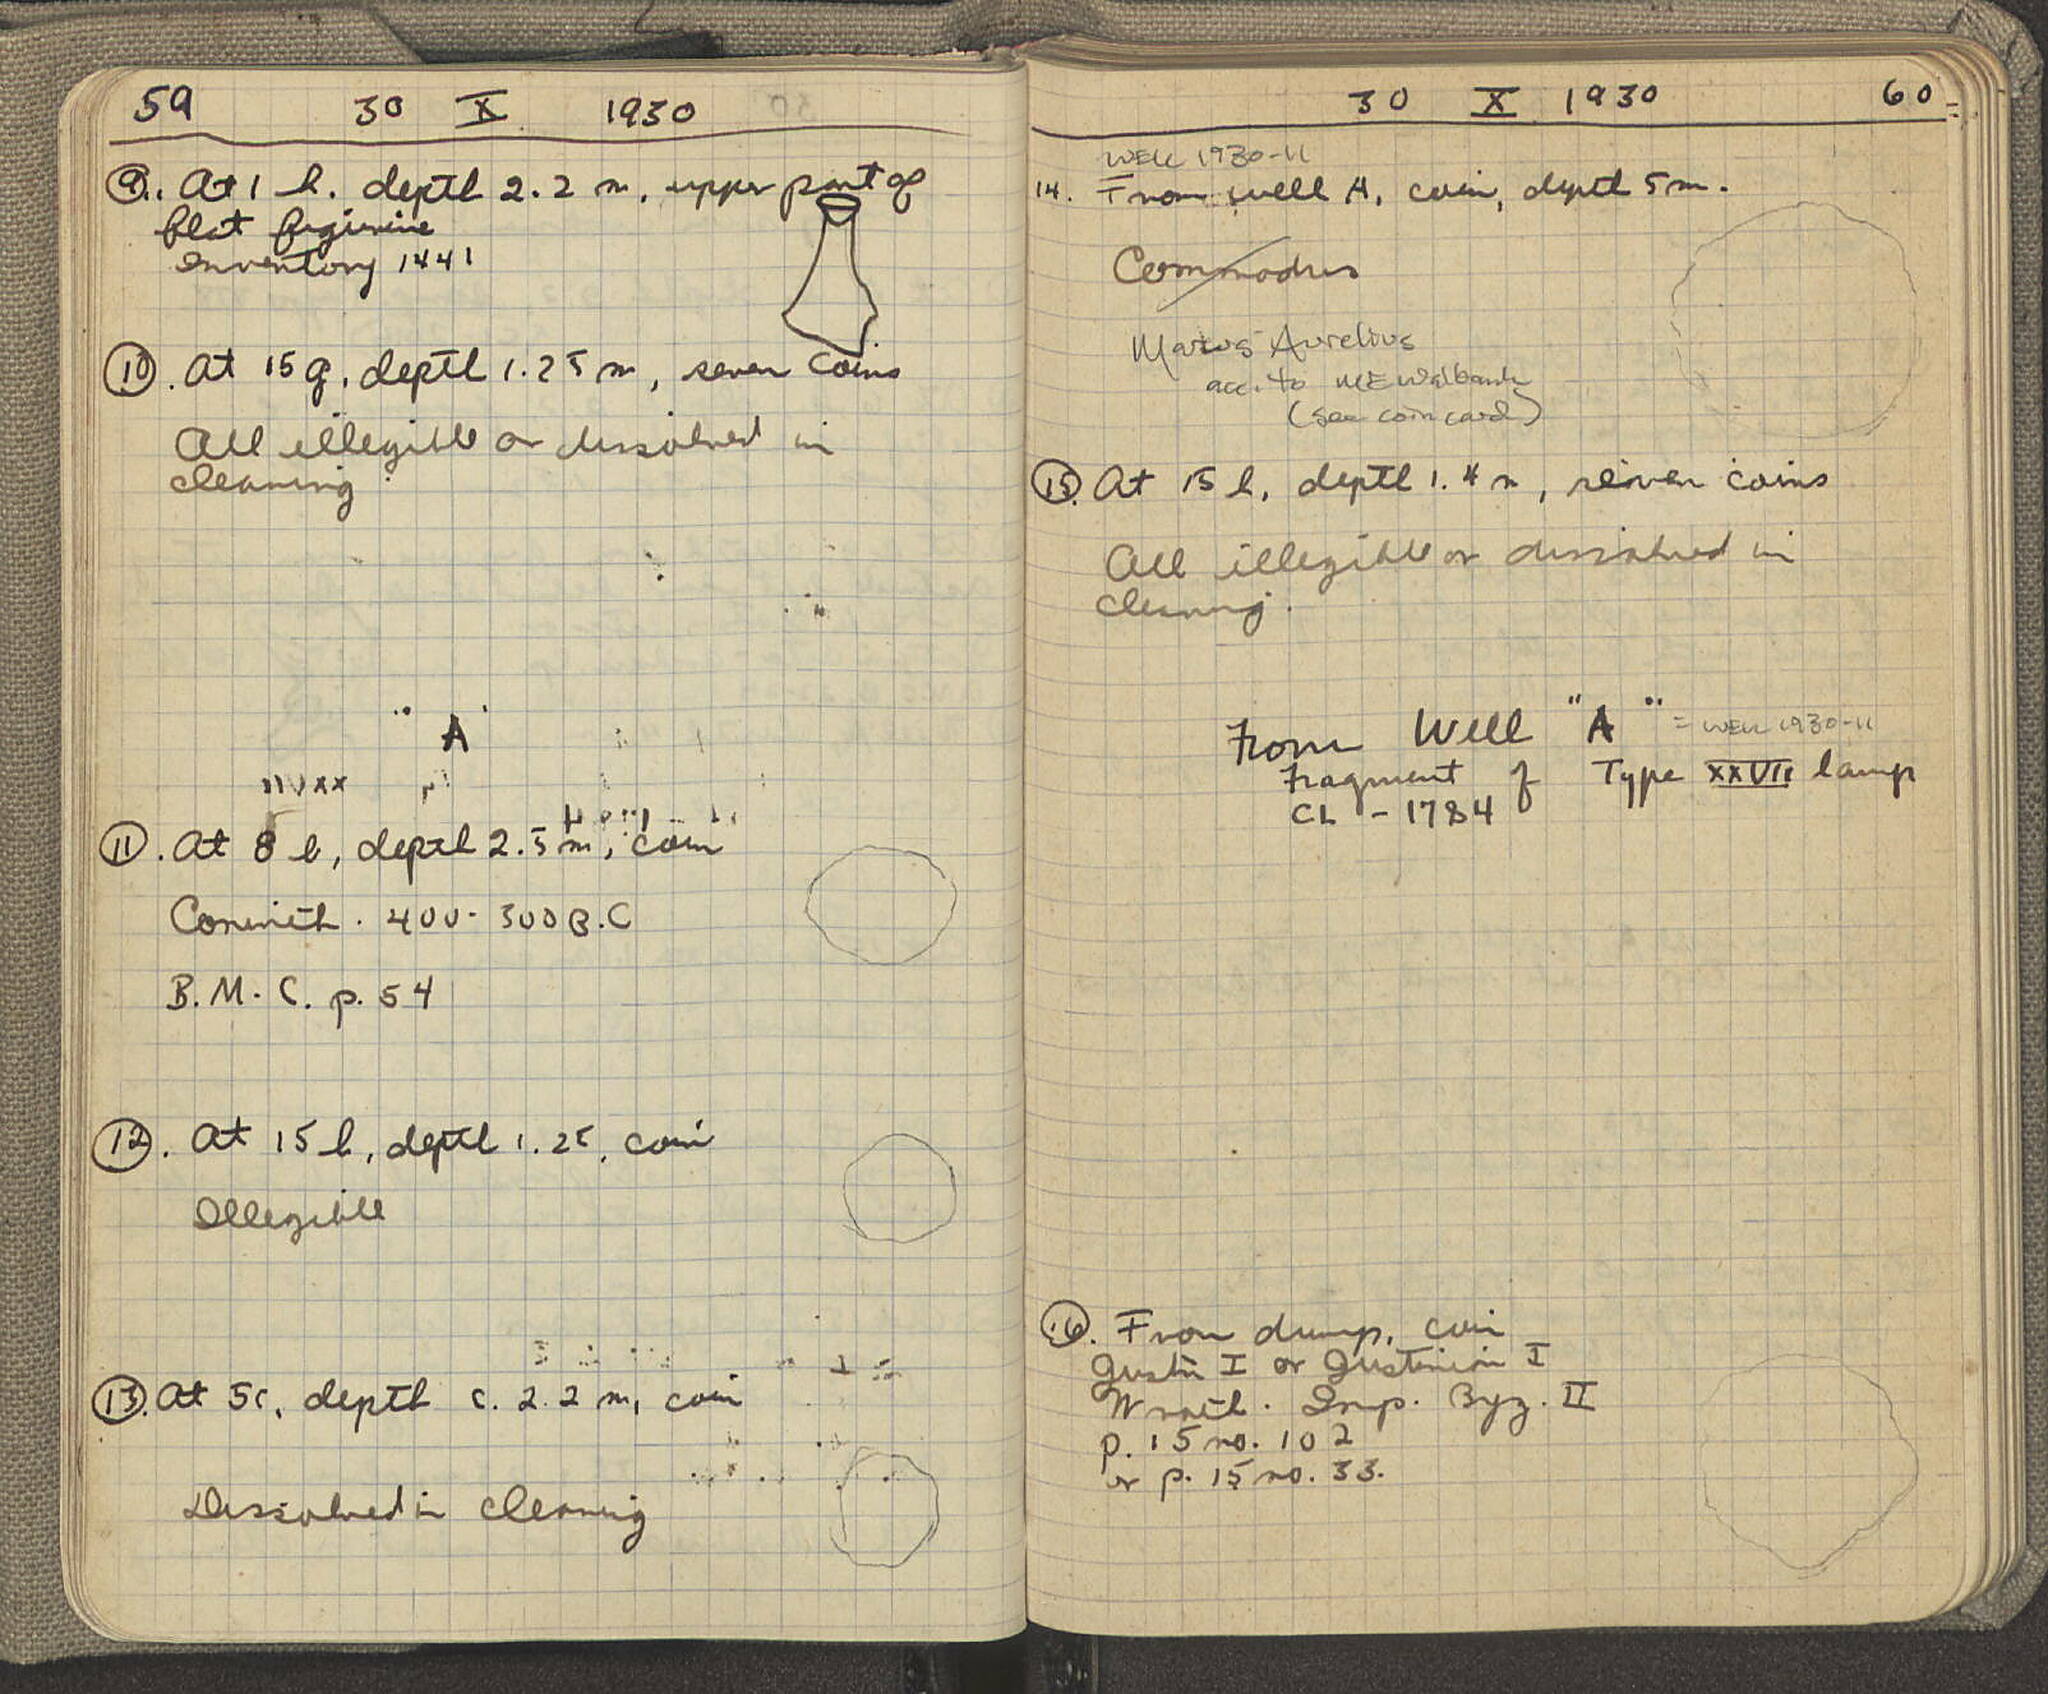 59 30 X 1930
9. At 1 h. depth 2.2 m, upper part of
flat figurine
Inventory 1441
10. At 15 g, depth 1.25 m, seven coins
All illegible or dissolved in
cleaning
11. At 8 b, depth 2.5 m, coin
Corinth. 400-300 B.C
B.M.C. p. 54
12. At 15 h, depth 1.25, coin
Illegible
13. At 5c, depth c. 2.2 m, coin
Dissolved in cleaning
30 X 1930 60
WELL 1930-11
14. From well A, coin, depth 5 m.
Commodus
Marcus Aurelius
acc. to ME Walbank
(see coin card)
15. At 15 h, depth 1.4 m, seven coins
All illegible or dissolved in
cleaning.
From Well "A" = WELL 1930-11
Fragment of Type XXVII lamp
CL - 1784
16. From dump, coin
Justin I or Justinian I
Wroth. Imp. Byz. II
p. 15 no. 102
or p. 15 no. 33.